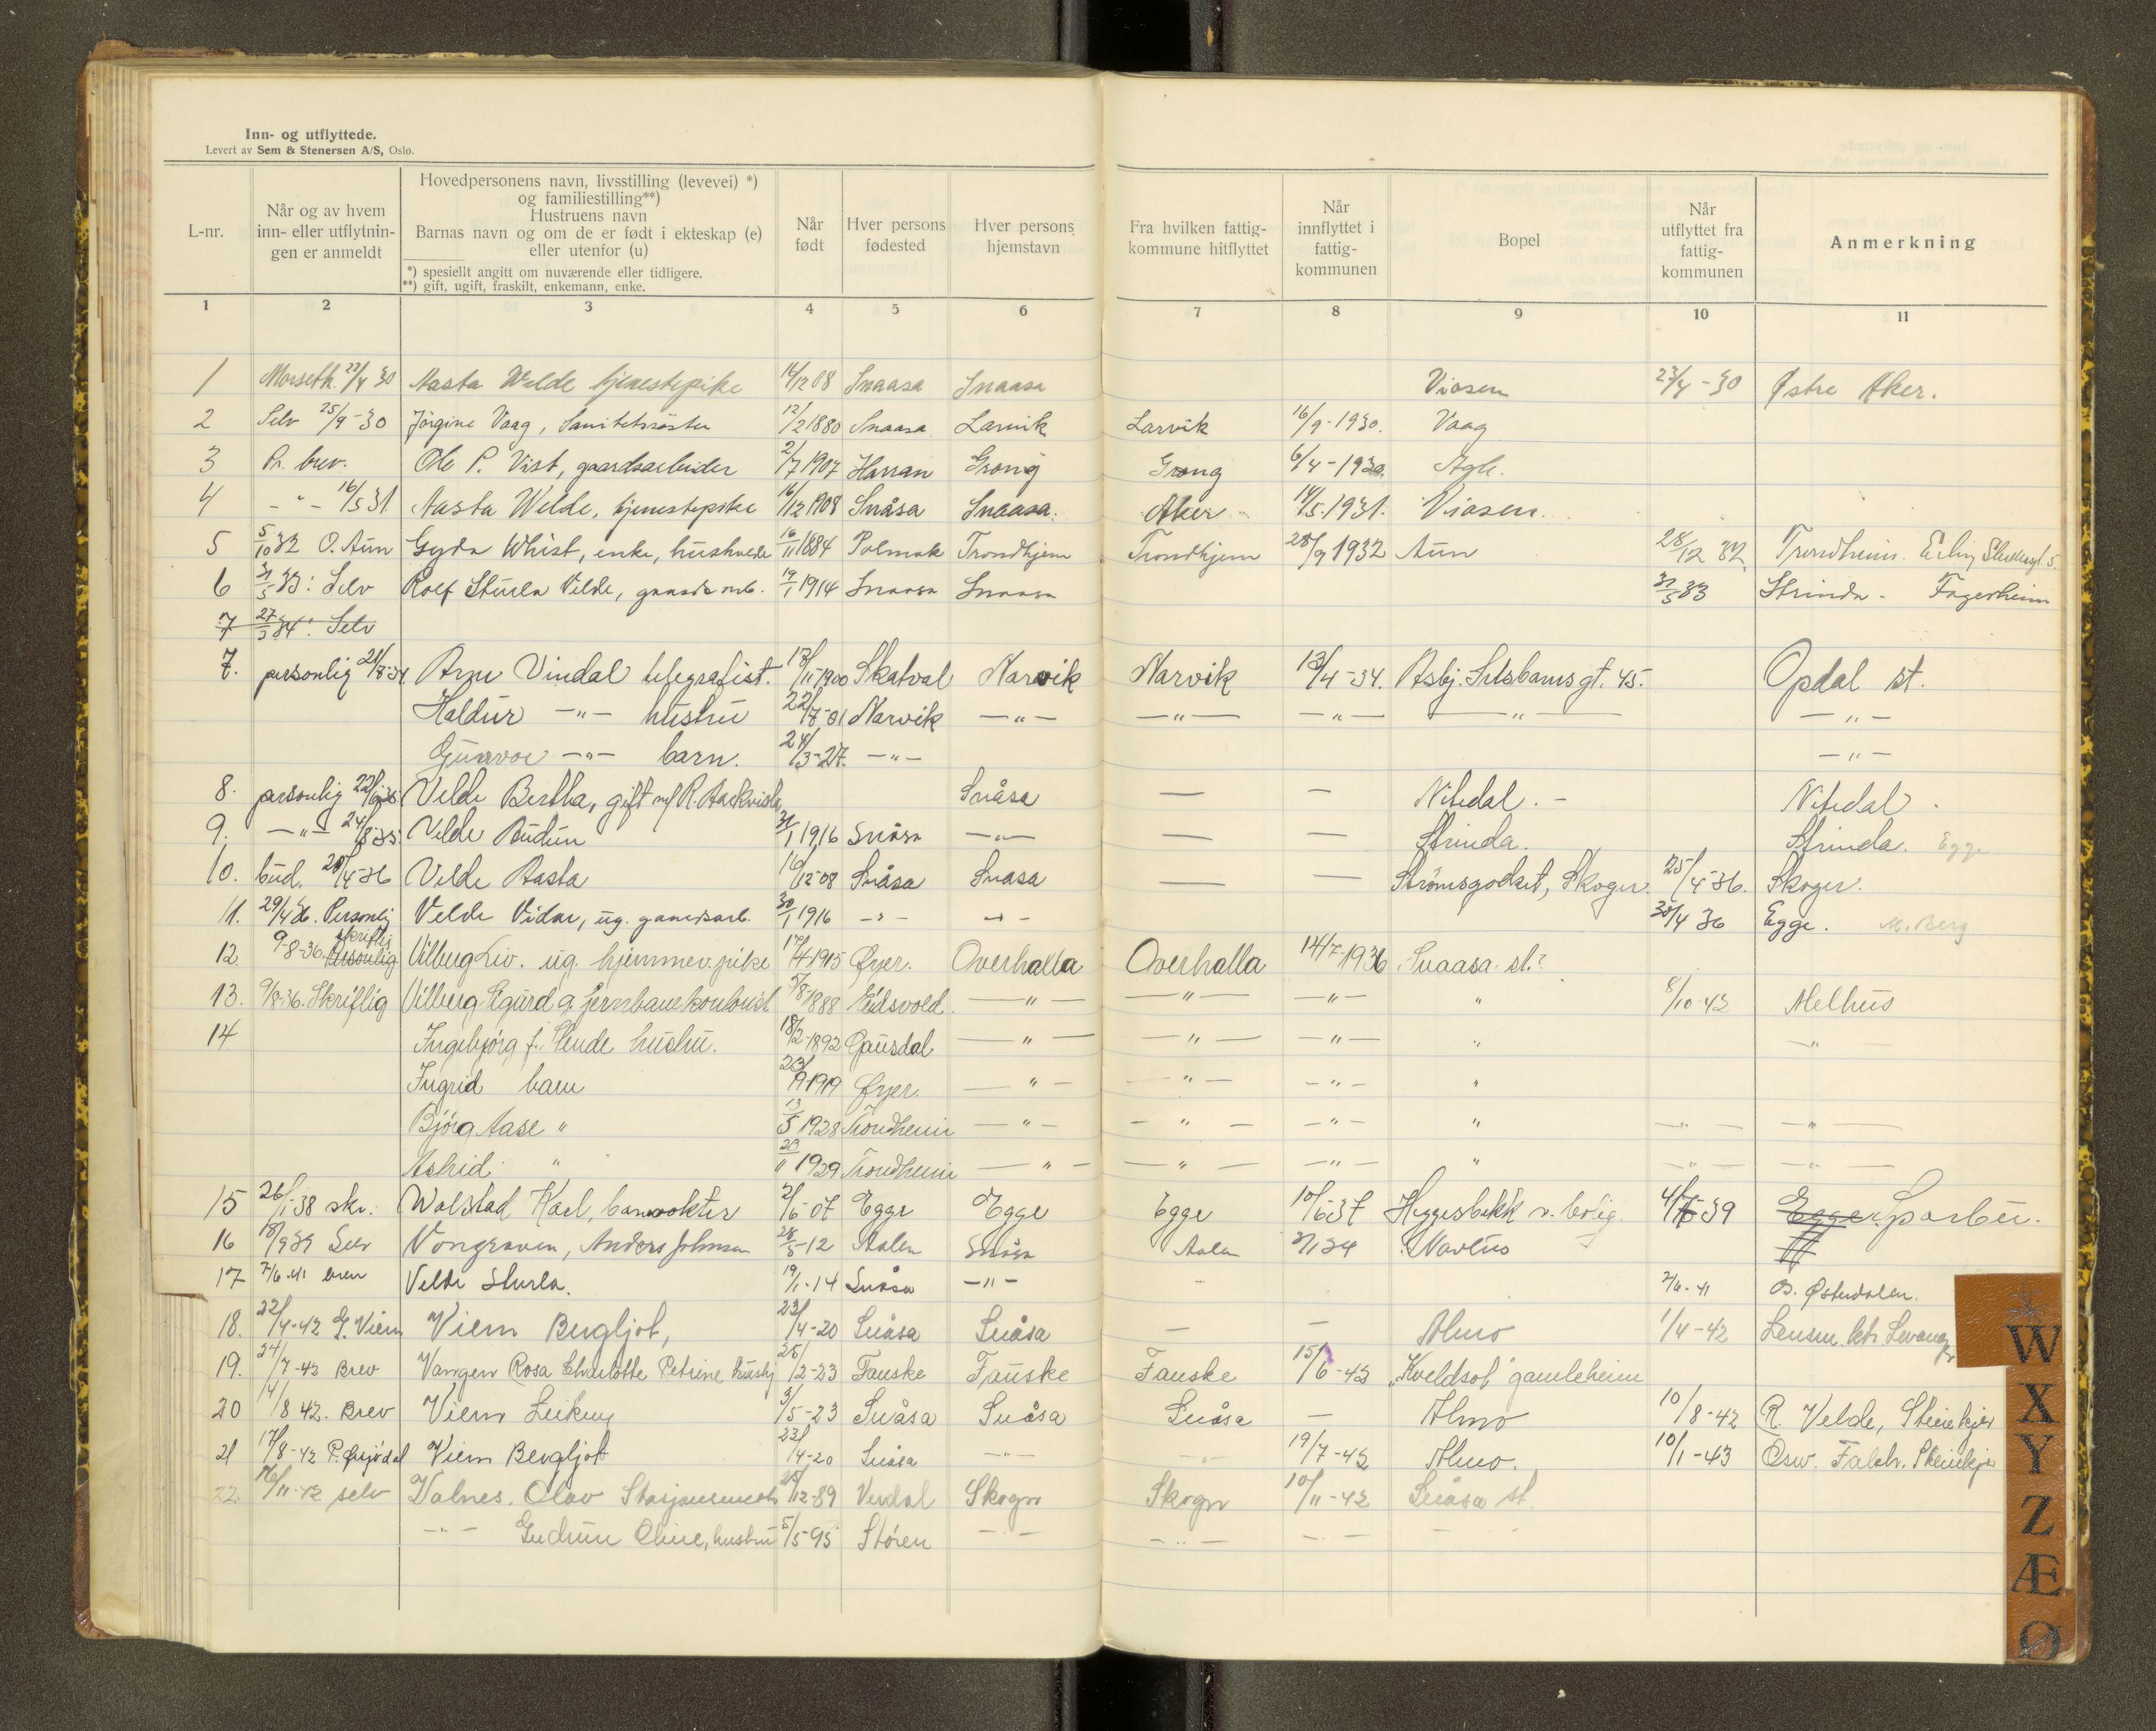 Inn- og utflyttede.
Levert av Sem & Stenersen A/S, Oslo.
L-nr.
Når og av hvem inn- eller utflytnin- gen er anmeldt
Hovedpersonens navn, livsstilling (levevei) *)
og familiestilling**)
Hustruens navn
Barnas navn og om de er født i ekteskap (e)
eller utenfor (u)
*) spesiellt angitt om nuværende eller tidligere.
**) gift, ugift, fraskilt, enkemann, enke.
Når født
Hver persons fødested
Hver persons hjemstavn
Fra hvilken fattig- kommune hitflyttet
Når innflyttet i fattig- kommunen
Bopel
Når utflyttet fra fattig- kommunen
Anmerkning
1 2 3 4 5 6 7 8 9 10 11
1 Morseth 22/4 30 Aasta Welde tjenestepike 14/12 08 Snaasa Snaasa Viosen 23/4-30 Østre Aker.
2 Selv 25/9-30 Jörgine Vaag, 12/2 1880 Snaasa Larvik Larvik 16/9-1930. Vaag
3 Pr. brev. Ole P. Vist, gaardsarbeider 2/7 1907 Harran Grong Grong 6/4-1930. Agle.
4 -"- 16/5 31 Aasta Welde, tjenestepike 16/12 1908 Snåsa Snaasa. Aker 14/5.1931. Viosen.
5 5/10 32 O. Aun Gyda Whist, enke, 16/11 1884 Polmak Trondhjem Trondhjem 28/9 1932 Aun 28/12 32. Trondheim.
6 31/5 33: Selv Rolf Sturla Velde, gaardsarb. 19/1 1914 Snaasa Snaasa 31/5 33 Strinda - Fagerheim
7 27/3 34: Selv
7. personlig 21/8-34. Arne Vindal telegrafist. 17/11-1900 Skatval Narvik Narvik 13/4-34. Asbj. Selsbansgt. 45. Opdal st.
Haldur -"- hustru 22/8-01 Narvik -"- -"- -"- -"- -"-
Gunvor -"- barn. 24/3-27. -"- -"-
8. personlig Velde Bertha, gift m/ R. Aarkvisla Snåsa — — Nitedal. - Nitedal.
9. -"- 24/8-35 Velde Audun 31/1 1916 Snåsa -"- — — Strinda. Strinda. Egge
10. bud. 20/4-36 Velde Aasta 16/12-08 Snåsa Snasa — — Strömsgodset, Skoger. 25/4-36. Skoger.
11. 29/4 36. Personlig Velde Vidar, ug. gaardsarb. 30/1 1916 -"- -"- 30/4 36 Egge. M. Berg
12. 9-8-36. Personlig skriftlig Vilberg Liv. ug. hjemmev. pike 17/4 1915 Øyer. Overhalla Overhalla 14/7-1936 Snaasa st.?
13. 9/8-36. Skriftlig Vilberg Sigurd g. jernbanekontorist 5/8-1888 Eidsvold. -"- -"- -"- " 8/10-42 Melhus
14 Ingebjørg f. hustru. 18/2-1892 Gausdal -"- -"- -"- " -"-
Ingrid barn 23/9 1919 Øyer. -"- -"- -"- "
Bjørg Aase " 13/5 1928 Trondheim -"- -"- -"- " -"- -"-
Astrid " 20/11 1929 Trondheim -"- -"- -"- " -"- -"-
15 26/1-38 skr. Walstad Karl, banevokter 2/6-07 Egge Egge Egge 10/6-37 Heggesbekk v. bolig. 39 Egge Sparbu.
16 18/9 39 Selv Vongraven, Anders Johnsen 28/5-12 Aalen Snåsa Aalen Navlus
17 7/6-41 brev Velde Sturla. 19/1-14 Snåsa -"- - 7/6-41 Ø. Østerdalen.
18. 22/4-42 G. Viem Viem Bergljot, 23/4-20 Snåsa Snåsa — — Almo 1/4-42 Lensm. ktr. Levanger
19. 24/7-42 Brev Vangen Rosa Charlotte Petrine hushj 25/12-23 Fauske Fauske Fauske 15/6-42 "Kveldsol" gamleheim
20 14/8 42. Brev Viem Leikny 3/5-23 Snåsa Snåsa Snåsa — Almo 10/8-42 R. Velde, Steinkjer
21 17/8-42 Viem Bergljot 23/4-20 Snåsa -"- -"- 19/7-42 Almo. 10/1-43 Osw. Falch. Steinkjer
22. 16/11-42 selv Valnes, Olav Stasjonsmester 28/12-89 Verdal Skogn Skogn 10/11-42 Snåsa st.
-"- Gudrun Oline, hustru 5/5-95 Støren -"- -"- -"-
W
X
Y
Z
Æ
Ø